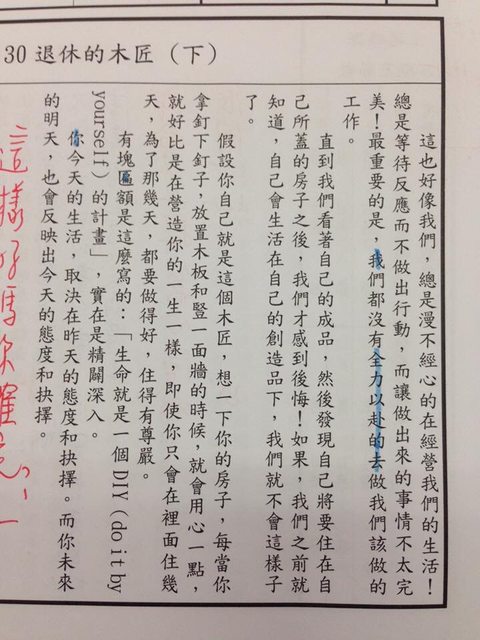 30 退休的木匠（下）
這也好像我們，總是漫不經心的在經營我們的生活！
總是等待反應而不做出行動，而讓做出來的事情不太完
美！最重要的是，我們都沒有全力以赴的去做我們該做的
工作。
直到我們看著自己的成品，然後發現自己將要住在自
己所蓋的房子之後，我們才感到後悔！如果，我們之前就
知道，自己會生活在自己的創造品下，我們就不會這樣子
了。
假設你自己就是這個木匠，想一下你的房子，每當你
拿釘下釘子，放置木板和豎一面牆的時候，就會用心一點，
就好比是在營造你的一生一樣，即使你只會在裡面住幾
天，為了那幾天，都要做得好，住得有尊嚴。
有塊匾額是這麼寫的：「生命就是一個DIY(do it by
yourself)的計畫」，實在是精闢深入。
你今天的生活，取決在昨天的態度和抉擇。而你未來
的明天，也會反映出今天的態度和抉擇。
這樣好嗎你